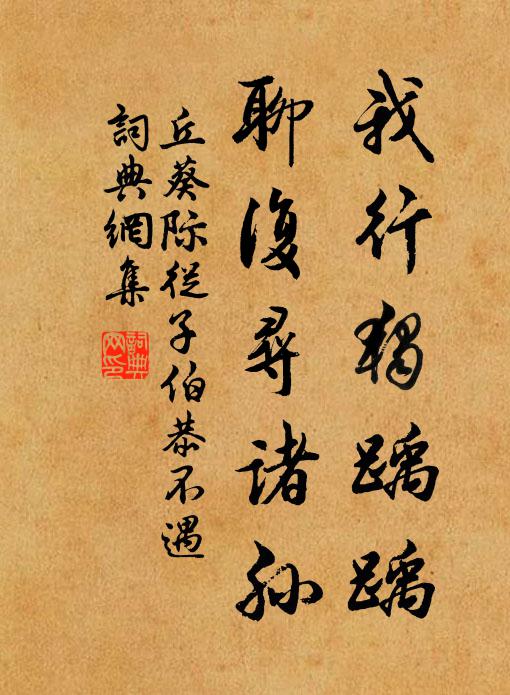 我行獨踽踽
聊復尋諸孫
丘葵际從子伯恭不遇
詞典網集
詞典網印